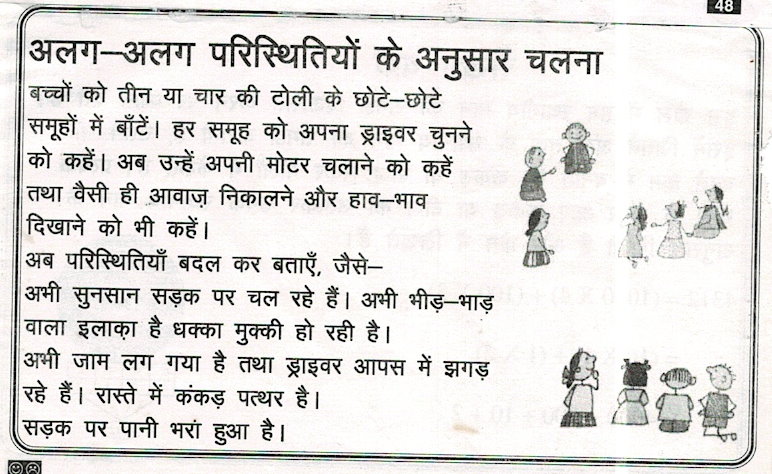 48
अलग–अलग परिस्थितियों के अनुसार चलना
बच्चों को तीन या चार की टोली के छोटे–छोटे
समूहों में बाँटें। हर समूह को अपना ड्राइवर चुनने
को कहें। अब उन्हें अपनी मोटर चलाने को कहें
तथा वैसी ही आवाज़ निकालने और हाव–भाव
दिखाने को भी कहें।
अब परिस्थितियाँ बदल कर बताएँ, जैसे–
अभी सुनसान सड़क पर चल रहे हैं। अभी भीड़–भाड़
वाला इलाक़ा है धक्का मुक्की हो रही है।
अभी जाम लग गया है तथा ड्राइवर आपस में झगड़
रहे हैं। रास्ते में कंकड़ पत्थर है।
सड़क पर पानी भरां हुआ है।